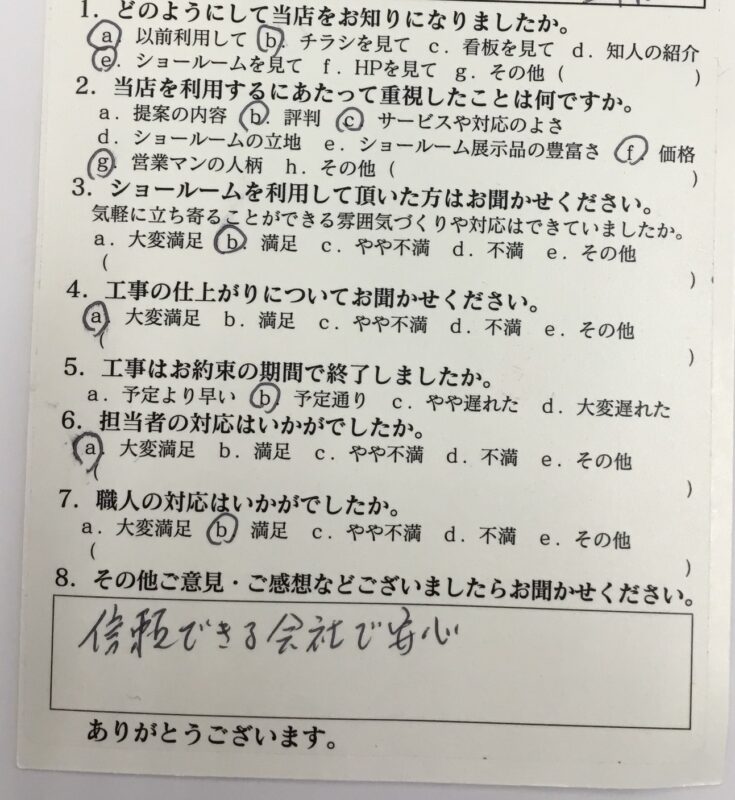 1．どのようにして当店をお知りになりましたか。
a．以前利用して　b．チラシを見て　c．看板を見て　d．知人の紹介
e．ショールームを見て　f．HPを見て　g．その他（　　　　　　）
2．当店を利用するにあたって重視したことは何ですか。
a．提案の内容　b．評判　c．サービスや対応のよさ
d．ショールームの立地　e．ショールーム展示品の豊富さ　f．価格
g．営業マンの人柄　h．その他（　　　　　　）
3．ショールームを利用して頂いた方はお聞かせください。
気軽に立ち寄ることができる雰囲気づくりや対応はできていましたか。
a．大変満足　b．満足　c．やや不満　d．不満　e．その他
（　　　　　　）
4．工事の仕上がりについてお聞かせください。
a．大変満足　b．満足　c．やや不満　d．不満　e．その他
（　　　　　　）
5．工事はお約束の期間で終了しましたか。
a．予定より早い　b．予定通り　c．やや遅れた　d．大変遅れた
6．担当者の対応はいかがでしたか。
a．大変満足　b．満足　c．やや不満　d．不満　e．その他
（　　　　　　）
7．職人の対応はいかがでしたか。
a．大変満足　b．満足　c．やや不満　d．不満　e．その他
（　　　　　　）
8．その他ご意見・ご感想などございましたらお聞かせください。
信頼できる会社で安心
ありがとうございます。